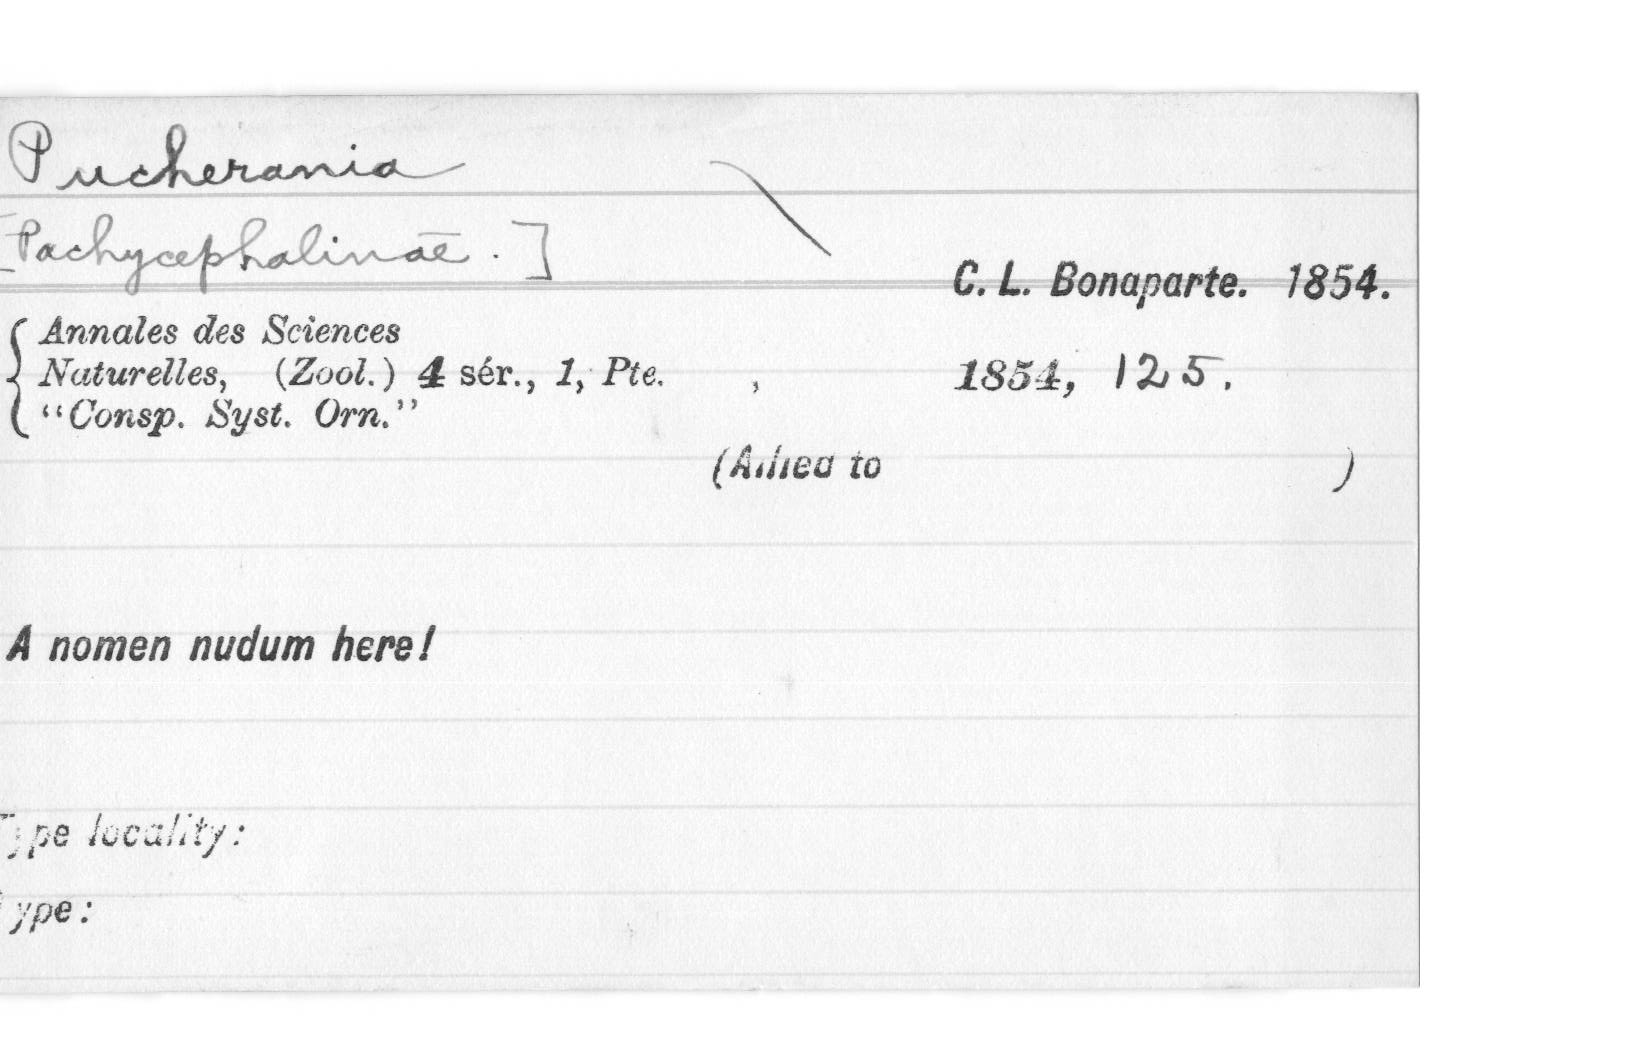 Pucherania
[Pachycephalinae.]
C. L. Bonaparte. 1854.
Annales des Sciences
Naturelles, (Zool.) 4 sér., 1, Pte. , 1854, 125.
"Consp. Syst. Orn."
(Allied to )
A nomen nudum here!
Type locality:
Type: